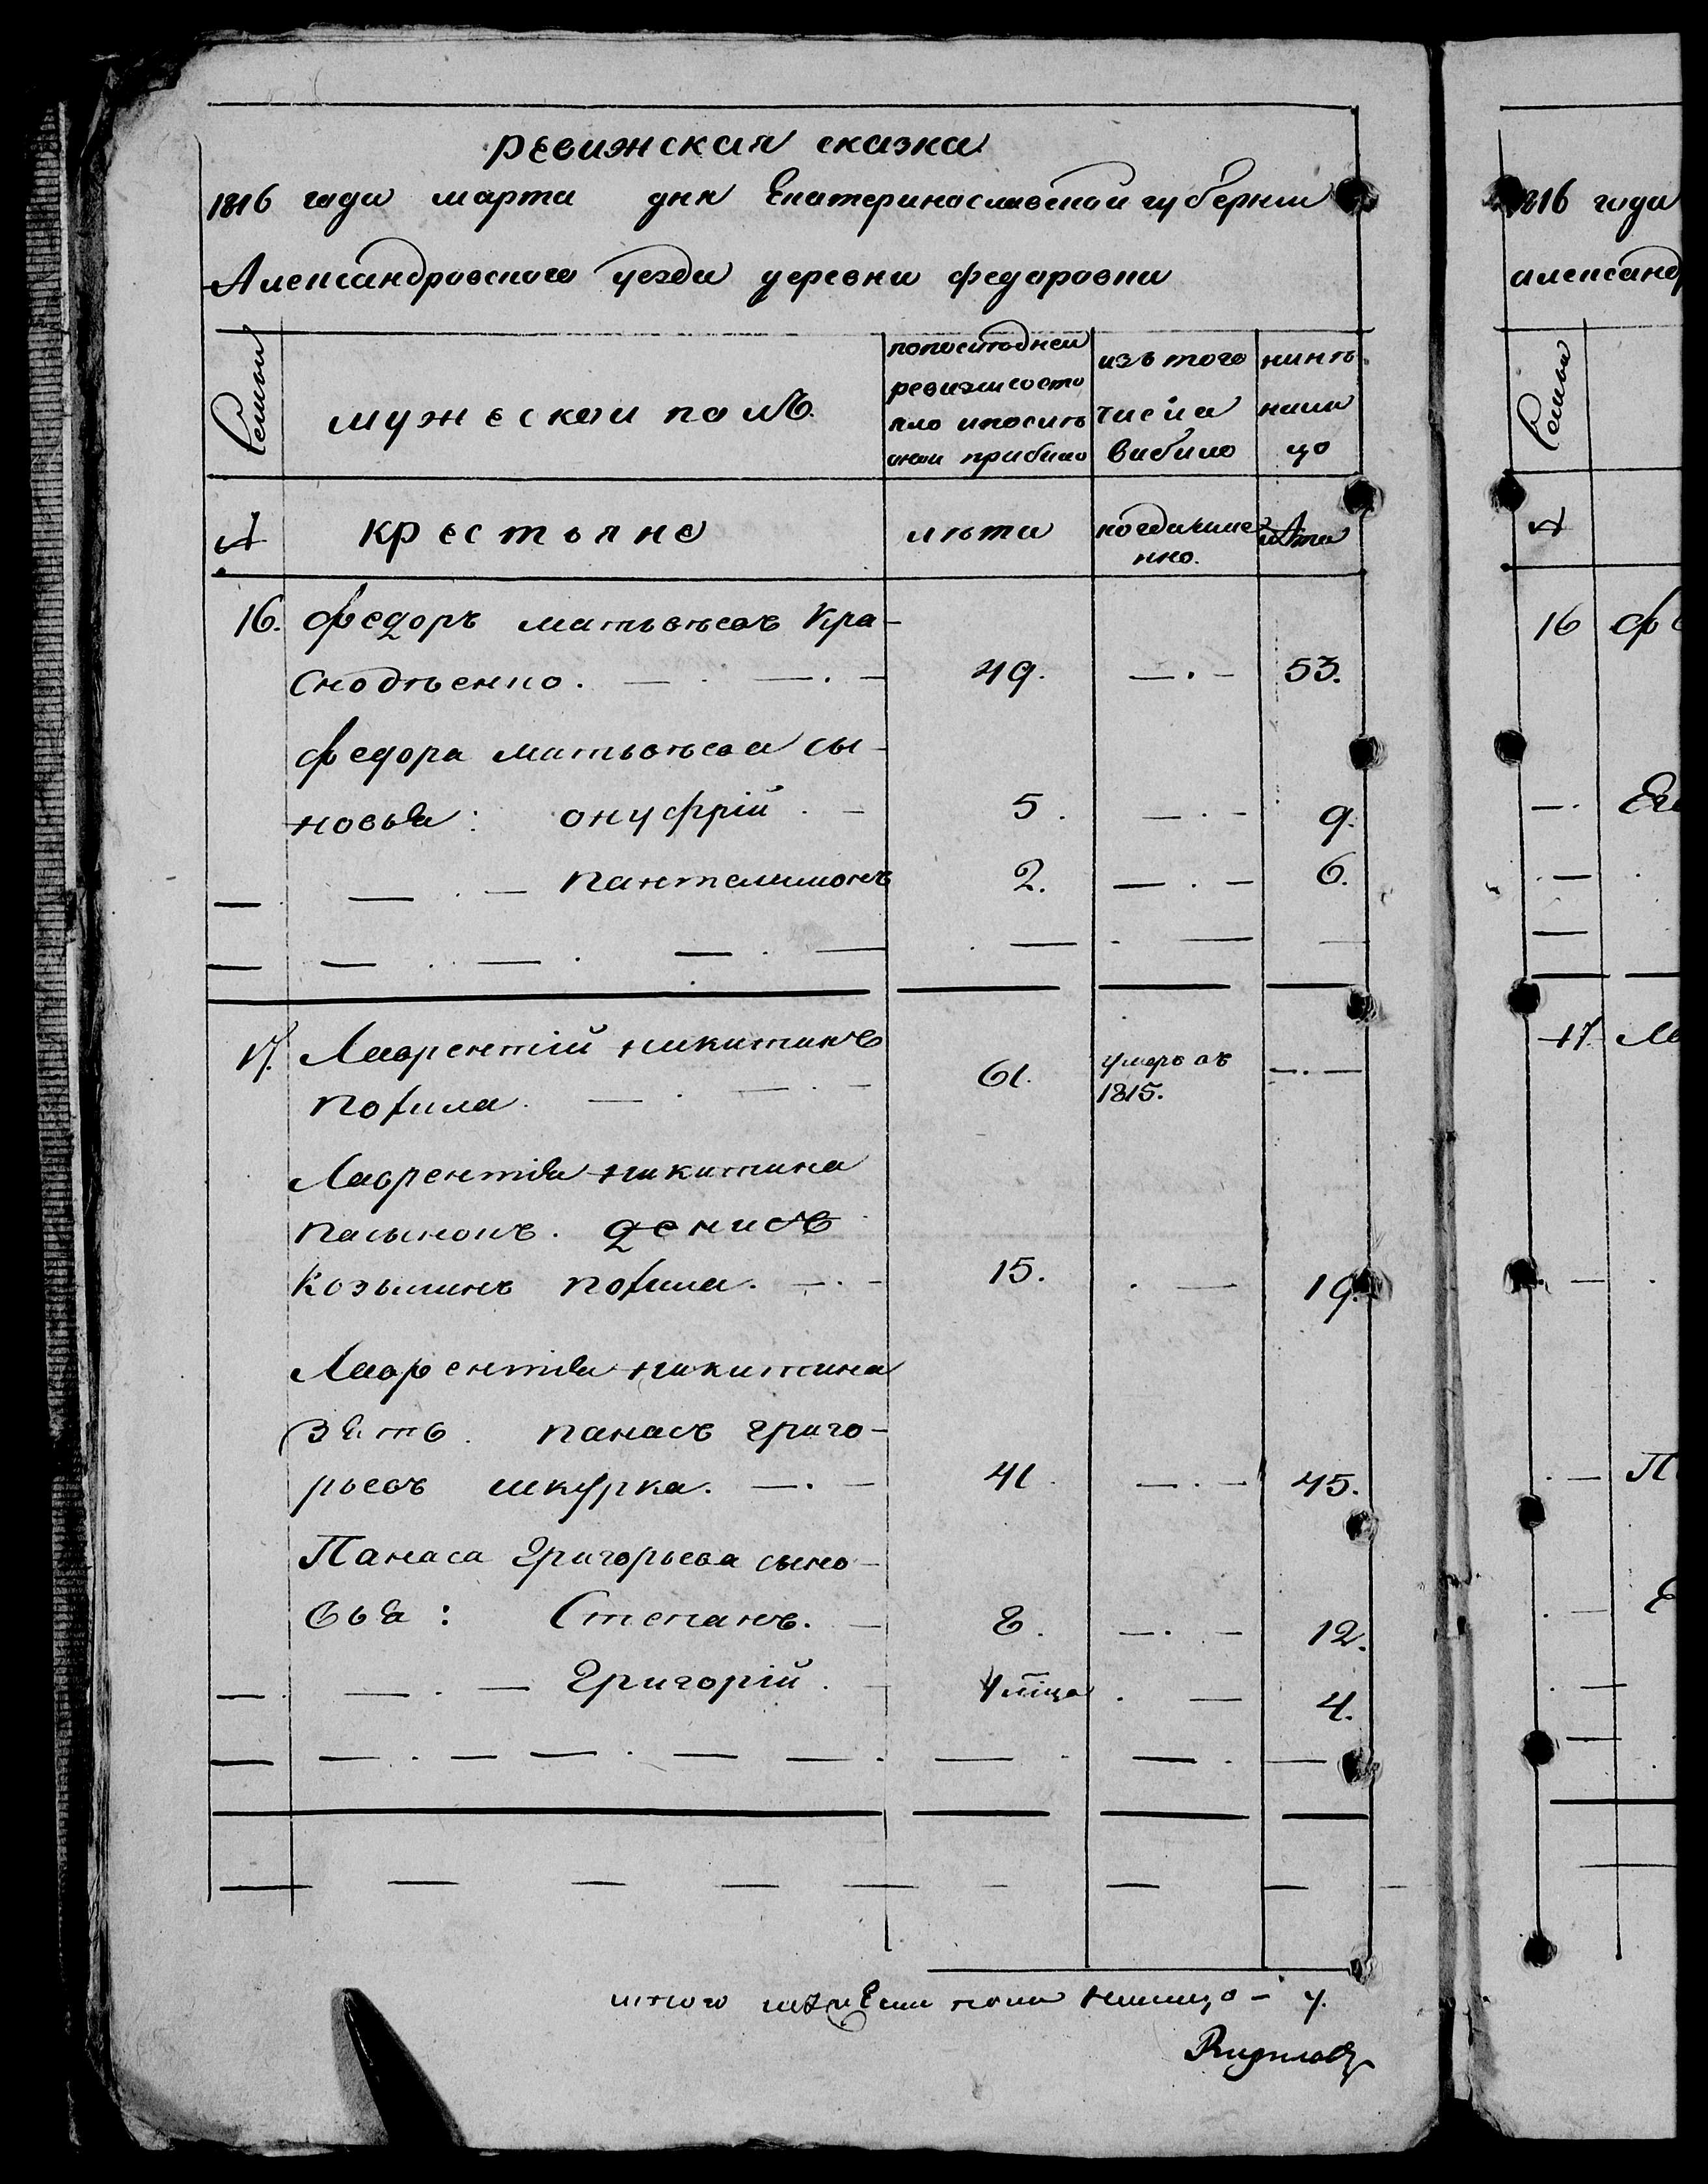 ревижская сказка
1816 года марта дня Екатеринославской губернии
Александровского уезда деревни федоровки
Семьи
мужеской полъ.
попоследней
ревизии состо
яло ипослѣ
оной прибило
изъ того
числа
вибило
нинѣ
нали
цо
№
крестьяне
лѣта
когдаимен
нно.
лѣта
16. федоръ матьвѣевъ Кра-
снобаенко. — . — . — 49. — . — 53.
федора матьвѣева сы-
новья: онуфрій . — 5. — . — 9.
— — . — пантелимонъ 2. — . — 6.
17. Лаврентій никитинъ
похила. — . — . — 61. умеръ въ 1815. — . —
Лаврентія никитина
пасынокъ. денисъ
Козьминъ похила. — . — 15. . — 19.
Лаврентія никитина
зять. панасъ григо-
рьевъ шкурка. — . — 41. — . — 45.
Панаса Григорьева сыно-
вья: Степанъ. — 8. — . — 12.
— . — . — Григорій. — 4 мѣца . — 4.
итого мужеска пола налицо — 7.
1816 года
александ
Семьи
№
16 фе
— . Его
17. Ла
. — П
. — Е